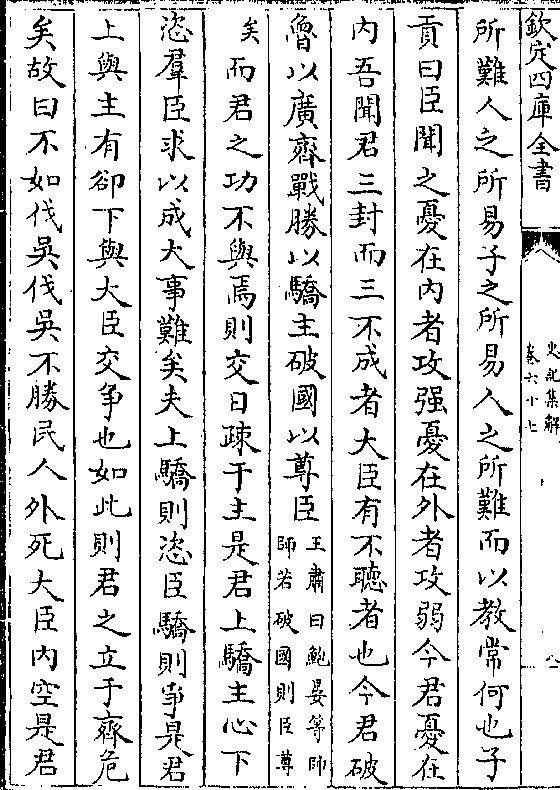 欽定四庫全書
史記集解
卷六十七
八
所難人之所易子之所易人之所難而以教常何也子
貢曰臣聞之憂在內者攻强憂在外者攻弱今君憂在
內吾聞君三封而三不成者大臣有不聽者也今君破
魯以廣齊戰勝以驕主破國以尊臣王肅曰鮑晏等帥
師若破國則臣尊
矣而君之功不與焉則交日疎于主是君上驕主心下
恣羣臣求以成大事難矣夫上驕則恣臣驕則爭是君
上與主有卻下與大臣交爭也如此則君之立于齊危
矣故曰不如伐吳伐吳不勝民人外死大臣內空是君